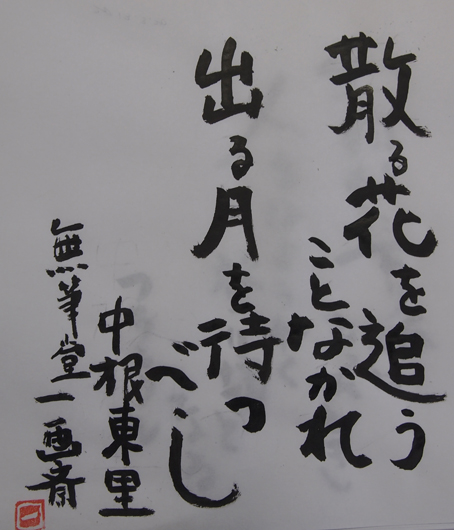 散る花を追う
ことなかれ
出る月を待つ
べし
中根東里
無筆堂一画斎
一